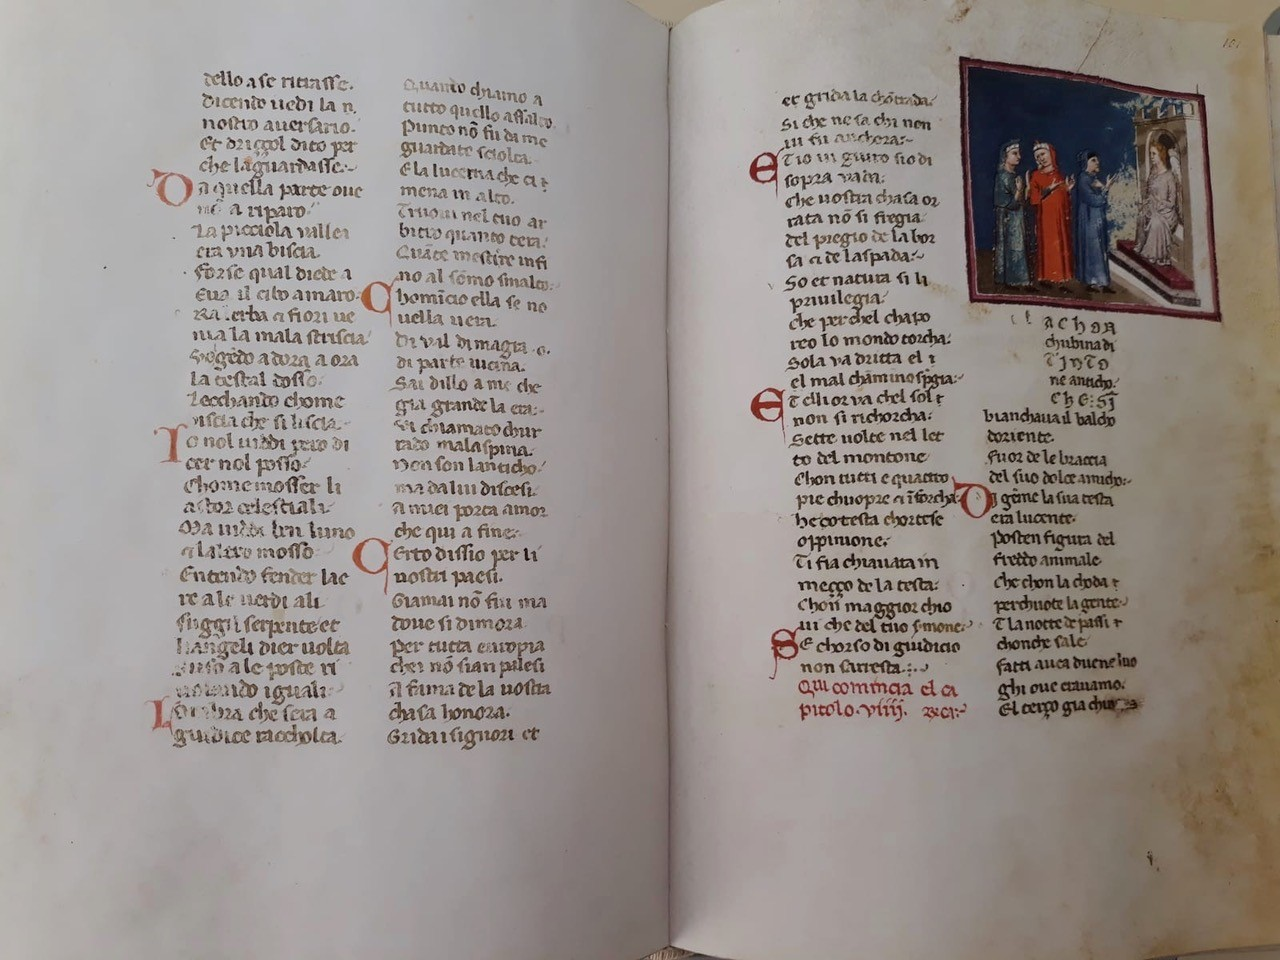 dello a se ritrasse.
Dicendo uedi la n
nostro auersario.
Et driçol dito per
che laguardasse.
Da quella parte oue
nō a riparo.
La picciola uallea
era vna biscia.
Forse qual diede a
Eua il cibo amaro.
Ra lerba ei fiori ue
nia la mala striscia
Volgēdo adora a ora
la testal dosso.
Lecchando chome
biscia che si liscia.
Io nol uiddi pero di
cer nol posso.
Chome mosser li
astor celestiali.
Ma uiddi ben luno
e laltro mosso
Entendo fender lae
re ale uerdi ali
Fuggil serpente et
liangeli dier uolta
Suso ale poste ri
uolando iguali.
Lombra che sera a
giudice raccholta.
Quanto chiamo a
tutto quello assalto.
Punto nō fu da me
guardare sciolta.
E la lucerna che ti
mena in alto.
Truoui nel tuo ar
bitro quanto cera.
Quāte mestire infi
no al sōmo smalto.
Chomīcio ella se no
uella uera.
Di ual di magra o
di parte uicina.
Sai dillo a me che
gia grande la era.
Fui chiamato chur
rado malaspina.
Non son lanticho.
ma da lui discesi.
A miei porta amor
che qui a fine.
Certo dissio per li
uostri paesi.
Giamai nō fui ma
doue si dimora
Per tutta europia
chei nō sian palesi
A fama de la uostra
chasa honora.
Grida i signori et
et grida la chōtrada.
Si che ne sa chi non
ui fu anchora.
Et io ui giuro sio di
sopra vada.
Che uostra chasa or
rata nō si fregia
del pregio de la bor
sa e de la spada.
So et natura si li
priuilegia
che perchel chapo
reo lo mondo torcha.
Sola va dritta el
el mal chāmino spgia.
Et elli or va chel sol
non si richorcha.
Sette uolte nel let
to del montone
Chon tutti e quattro
pie chuopre e īforcha.
he cotesta chortese
oppinione.
Ti fia chiauata in
meçço de la testa.
Chon maggior chio
ui che del tuo smone.
Se chorso di giudicio
non saresta.
Qui comincia el ca
pitolo. viiij.
LA CHON
chubina di
TINTO
ne anticho.
CHE. SI
bianchaua il balcho
doriente.
Fuor de le braccia
del suo dolce amicho.
Di gēme la sua testa
era lucente.
Posten figura del
freddo animale.
Che chon la choda
perchuote la gente.
E la notte de passi
chonche sale
Fatti auea duene luo
ghi oue erauamo.
El terço gia